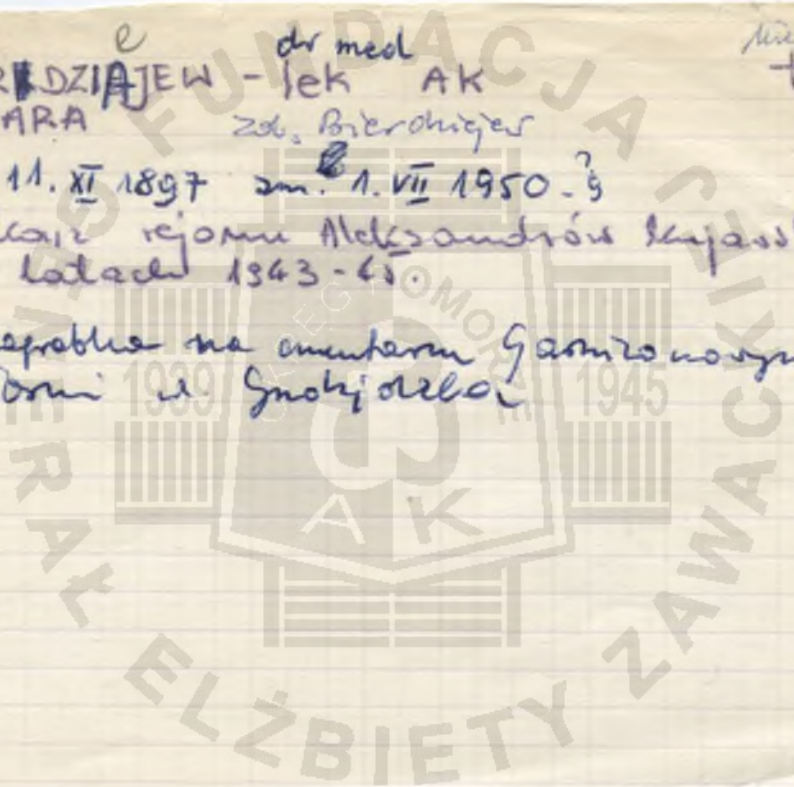 e
dr med
RDZIAJEW - lek AK
ARA
zob. Bierdiajew
11. XI 1897 zm. 1. VII 1950 - ?
rejonu Aleksandrów Kujaws
latach 1943-45.
na cmentarzu Garnizonowym
ul. Grudziądzka
FUNDACJA
GENERAŁ ELŻBIETY ZAWACKIEJ
OKRĘG POMORZE
1939 1945
AK